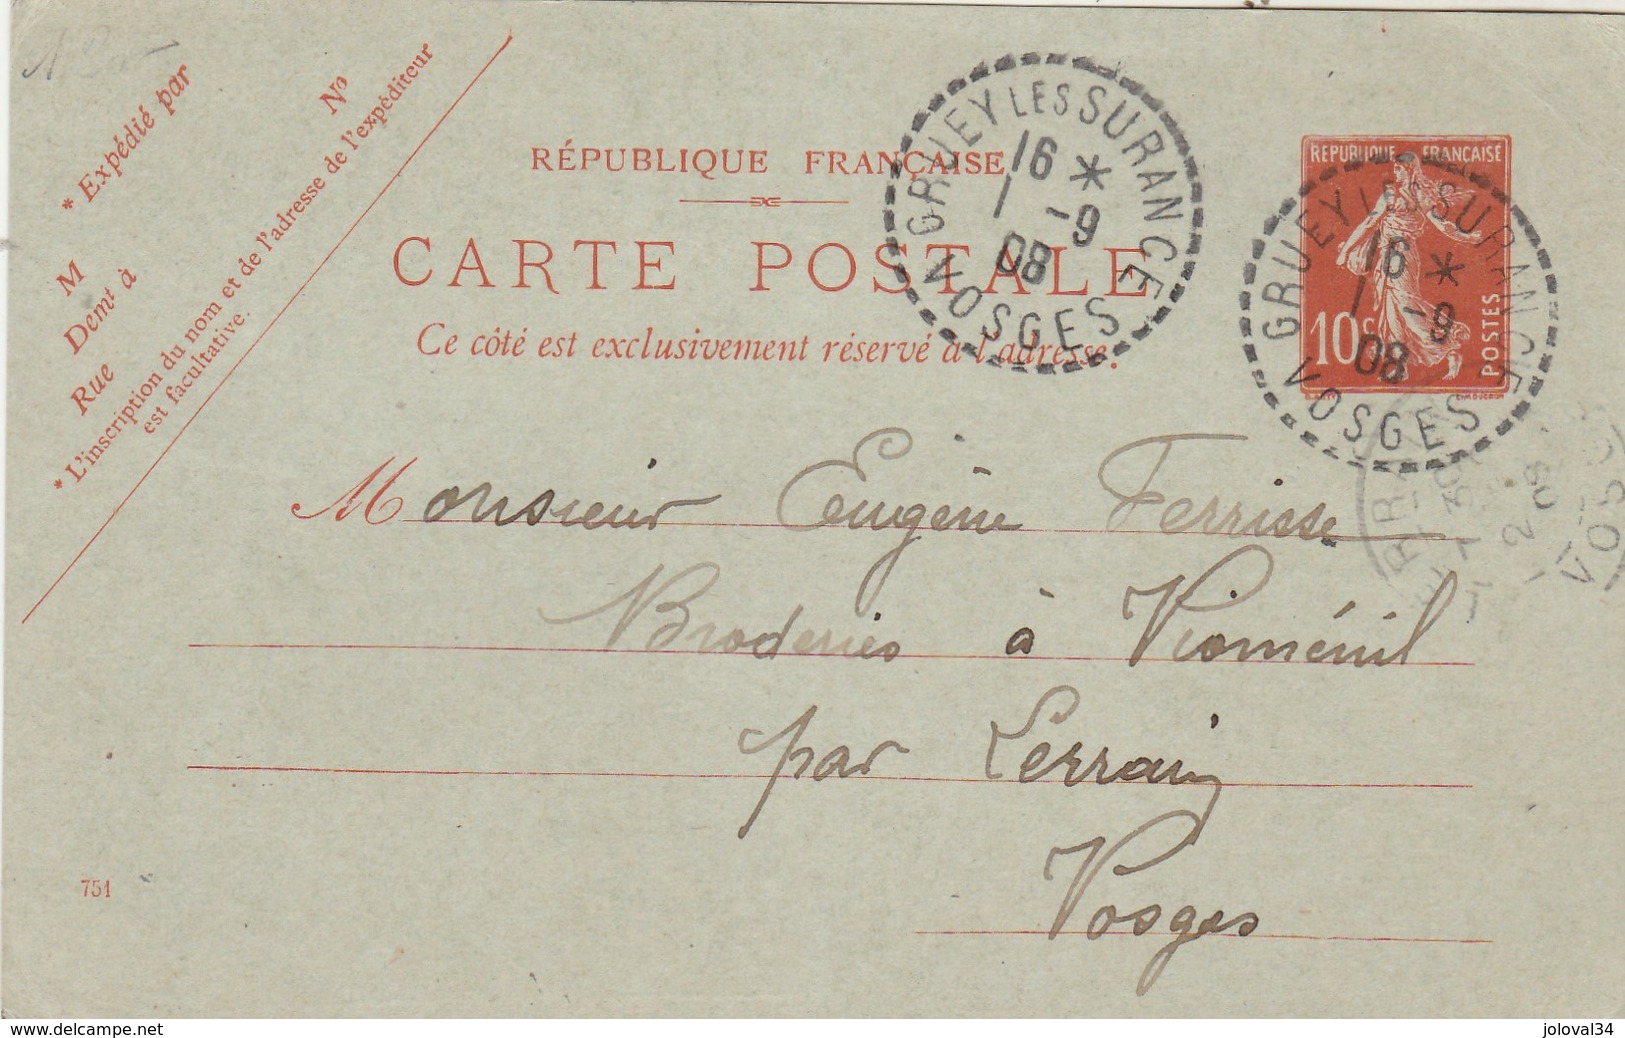 * Expédié par
N°
M
Demt à
Rue
* L'inscription du nom et de l'adresse de l'expéditeur
est facultative.
RÉPUBLIQUE FRANÇAISE
CARTE POSTALE
Ce côté est exclusivement réservé à l'adresse.
GRUEY LES SURANCE
16 *
1 -9
08
VOSGES
REPUBLIQUE FRANÇAISE
10c
POSTES
GRUEY LES SURANCE
16 *
1 -9
08
VOSGES
Monsieur Eugène Ferrisse
Broderies à Vioménil
par Lerrain
Vosges
751
www.delcampe.net
joloval34